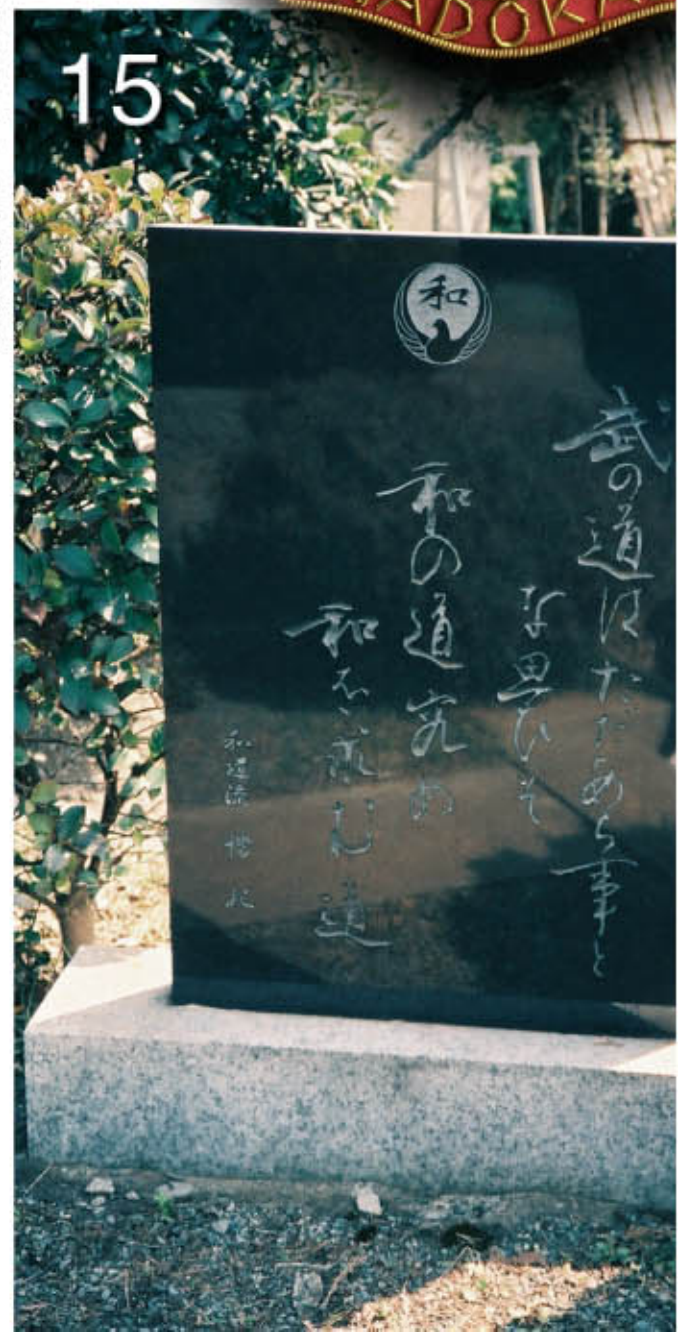 ADOKA
15
和
武の道はただあら事と
な思ひそ
和の道究め
和を求む道
和道流